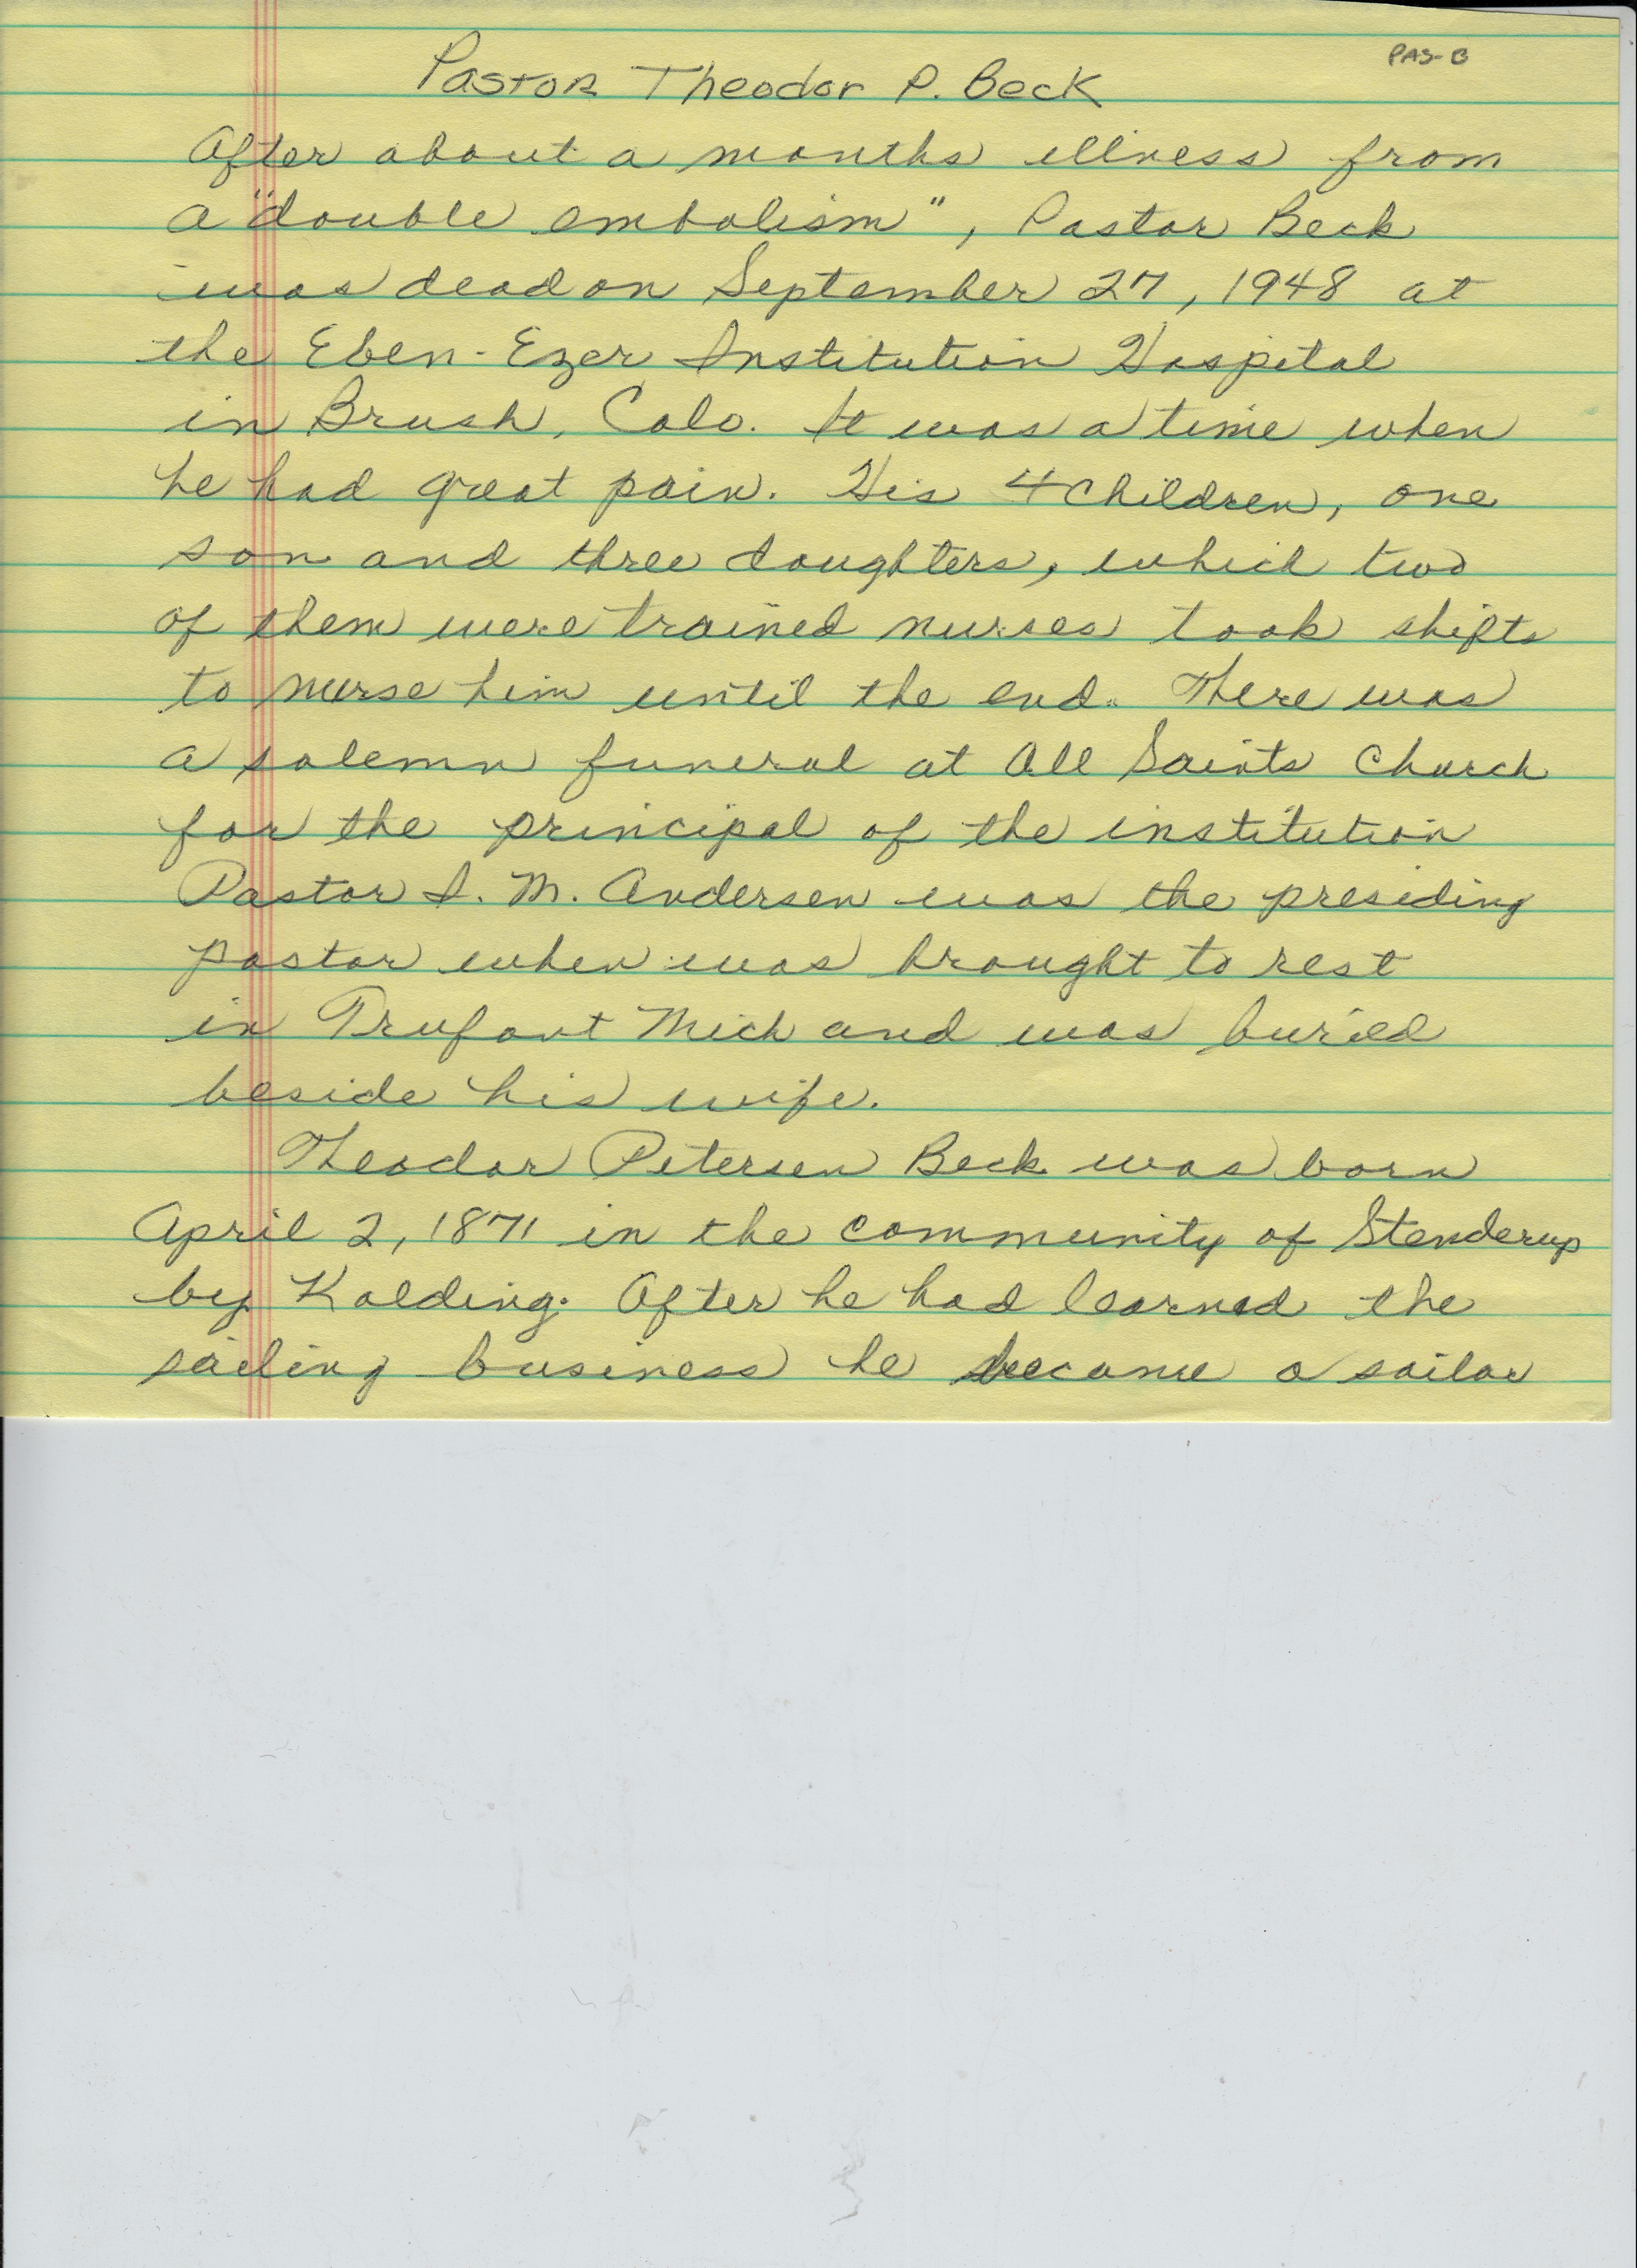 PAS-B
Pastor Theodor P. Beck
After about a months illness from
a "double embolism", Pastor Beck
was dead on September 27, 1948 at
the Eben-Ezer Institution Hospital
in Brush, Colo. It was a time when
he had great pain. His 4 children, one
son and three daughters, which two
of them were trained nurses took shifts
to nurse him until the end. There was
a solemn funeral at All Saints Church
for the principal of the institution
Pastor I. M. Andersen was the presiding
pastor when was brought to rest
in Trufant Mich and was buried
beside his wife.
Theodor Petersen Beck was born
April 2, 1871 in the community of Stenderup
by Kolding. After he had learned the
sailing business he became a sailor